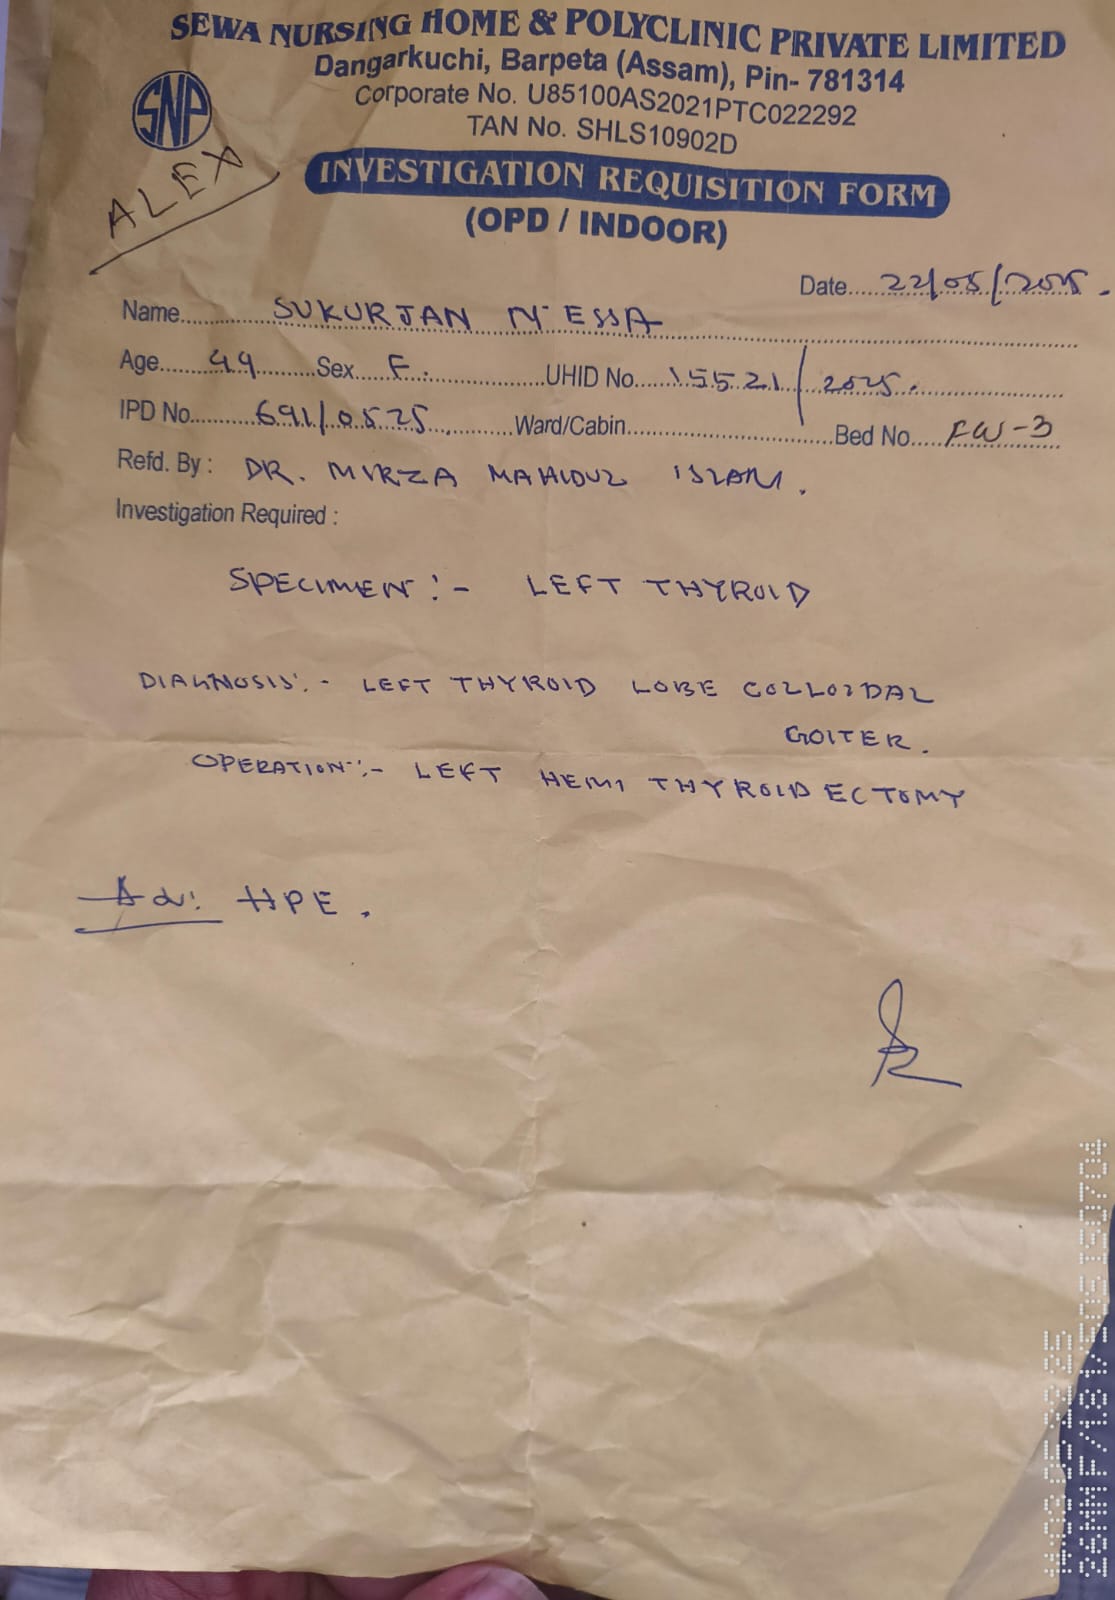 SEWA NURSING HOME & POLYCLINIC PRIVATE LIMITED
Dangarkuchi, Barpeta (Assam), Pin- 781314
Corporate No. U85100AS2021PTC022292
TAN No. SHLS10902D
SNP
ALEX
INVESTIGATION REQUISITION FORM
(OPD / INDOOR)
Date....22/05/2025.
Name..........SUKURJAN N'ESSA
Age......49.........Sex....F..............UHID No....15521/2025.
IPD No........691/0525.......Ward/Cabin..............................Bed No....FW-3
Refd. By : DR. MIRZA MAHIDUL ISLAM.
Investigation Required :
SPECIMEN :- LEFT THYROID
DIAGNOSIS :- LEFT THYROID LOBE COLLOIDAL
GOITER.
OPERATION :- LEFT HEMI THYROIDECTOMY
Adv: HPE.